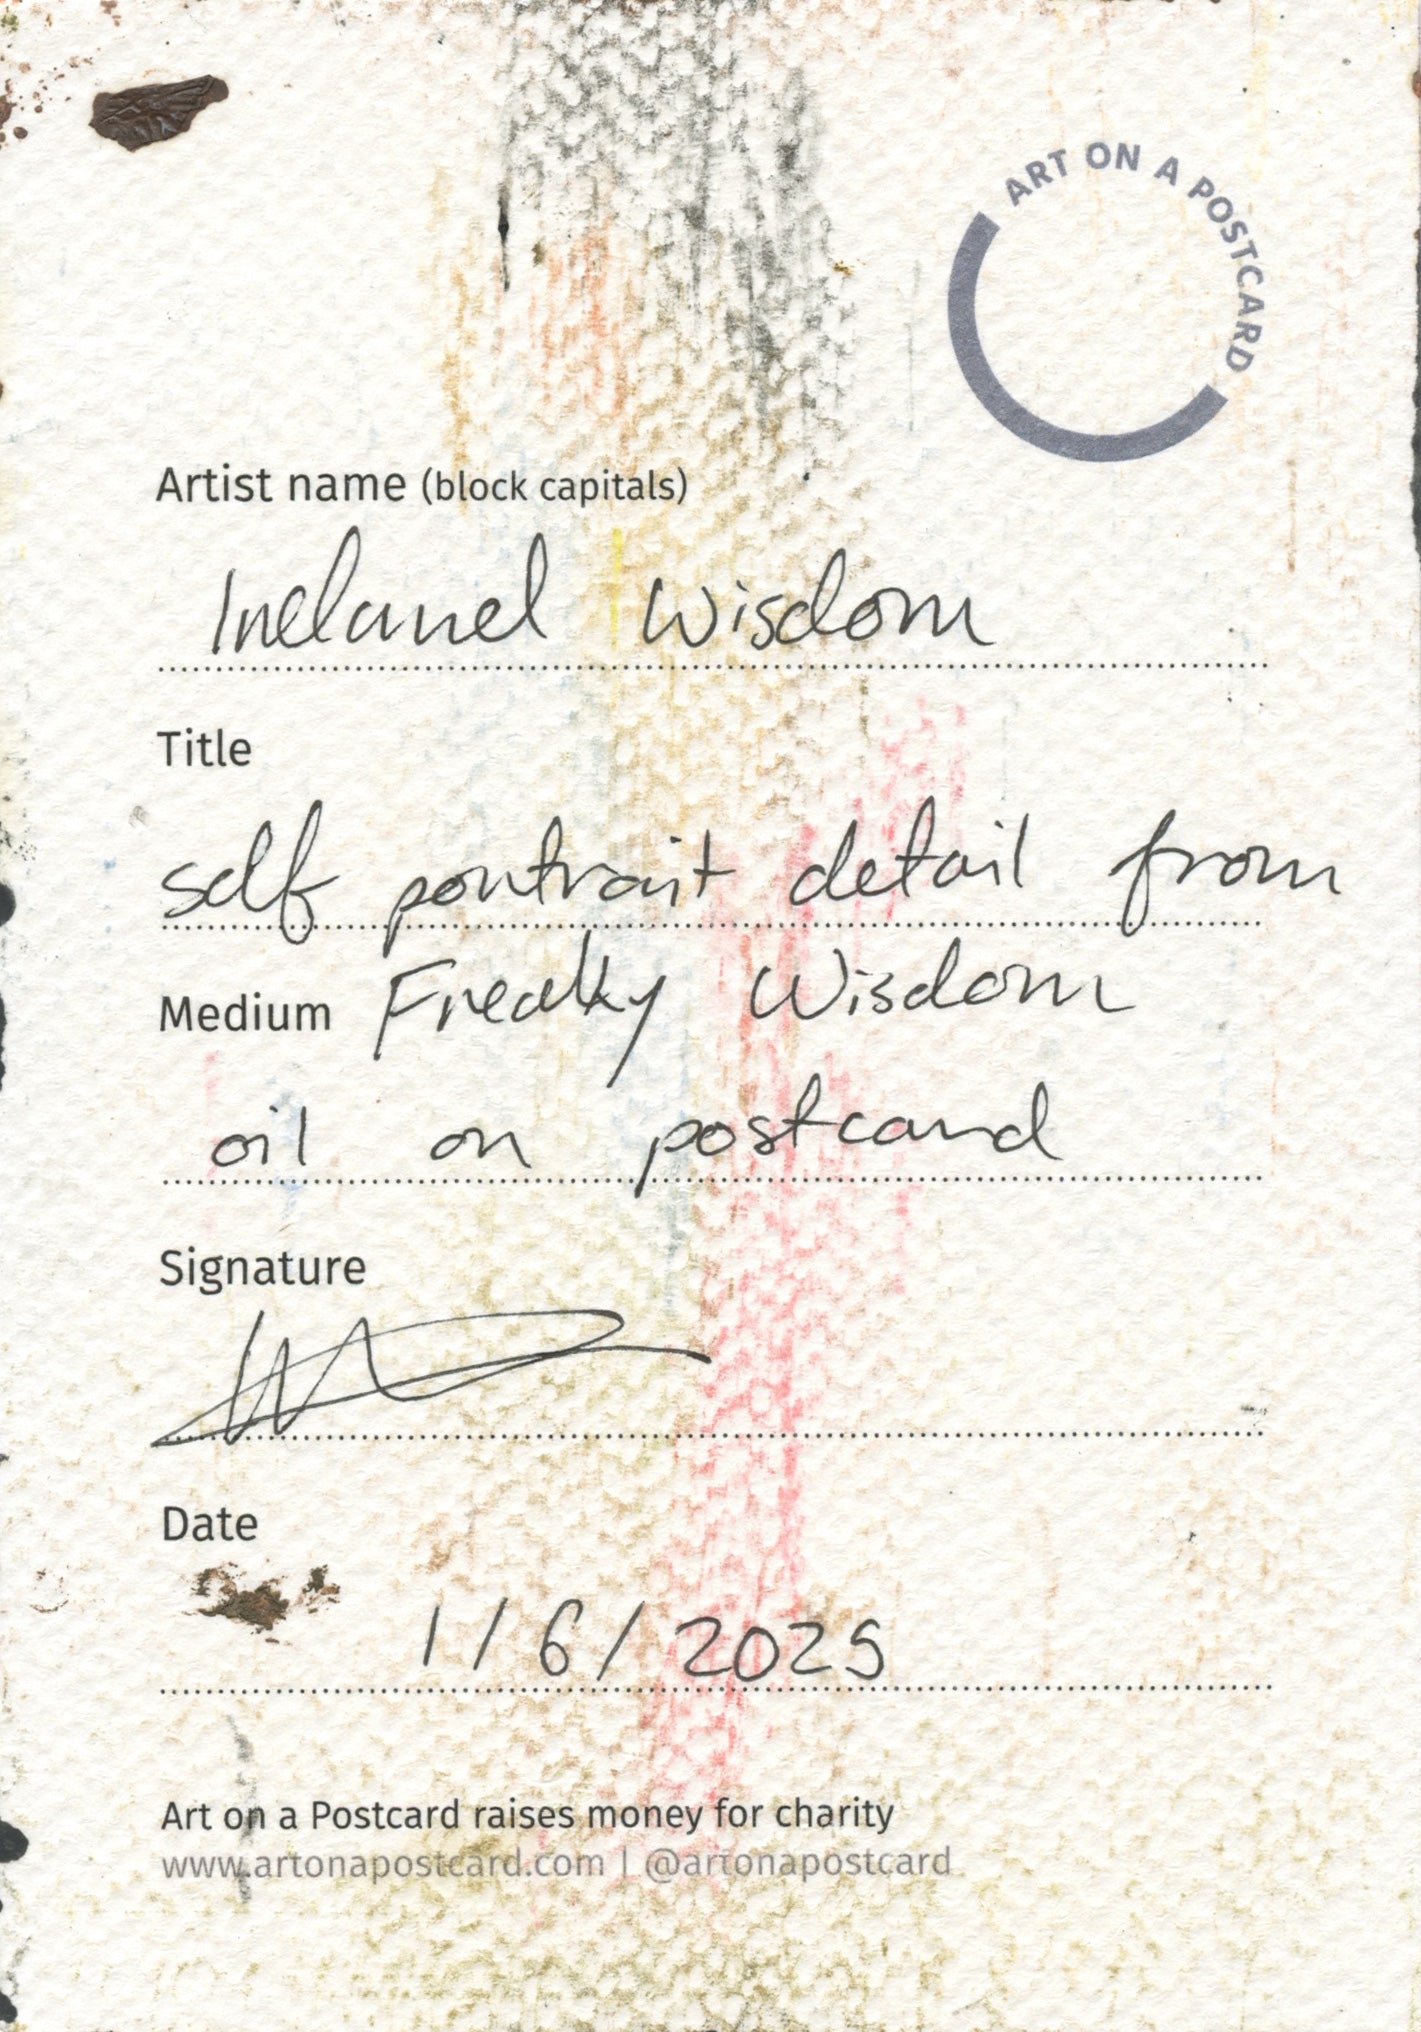 ART ON A POSTCARD
Artist name (block capitals)
Ireland Wisdom
Title
self portrait detail from
Freaky Wisdom
Medium
oil on postcard
Signature
Date
1/6/2025
Art on a Postcard raises money for charity
www.artonapostcard.com | @artonapostcard